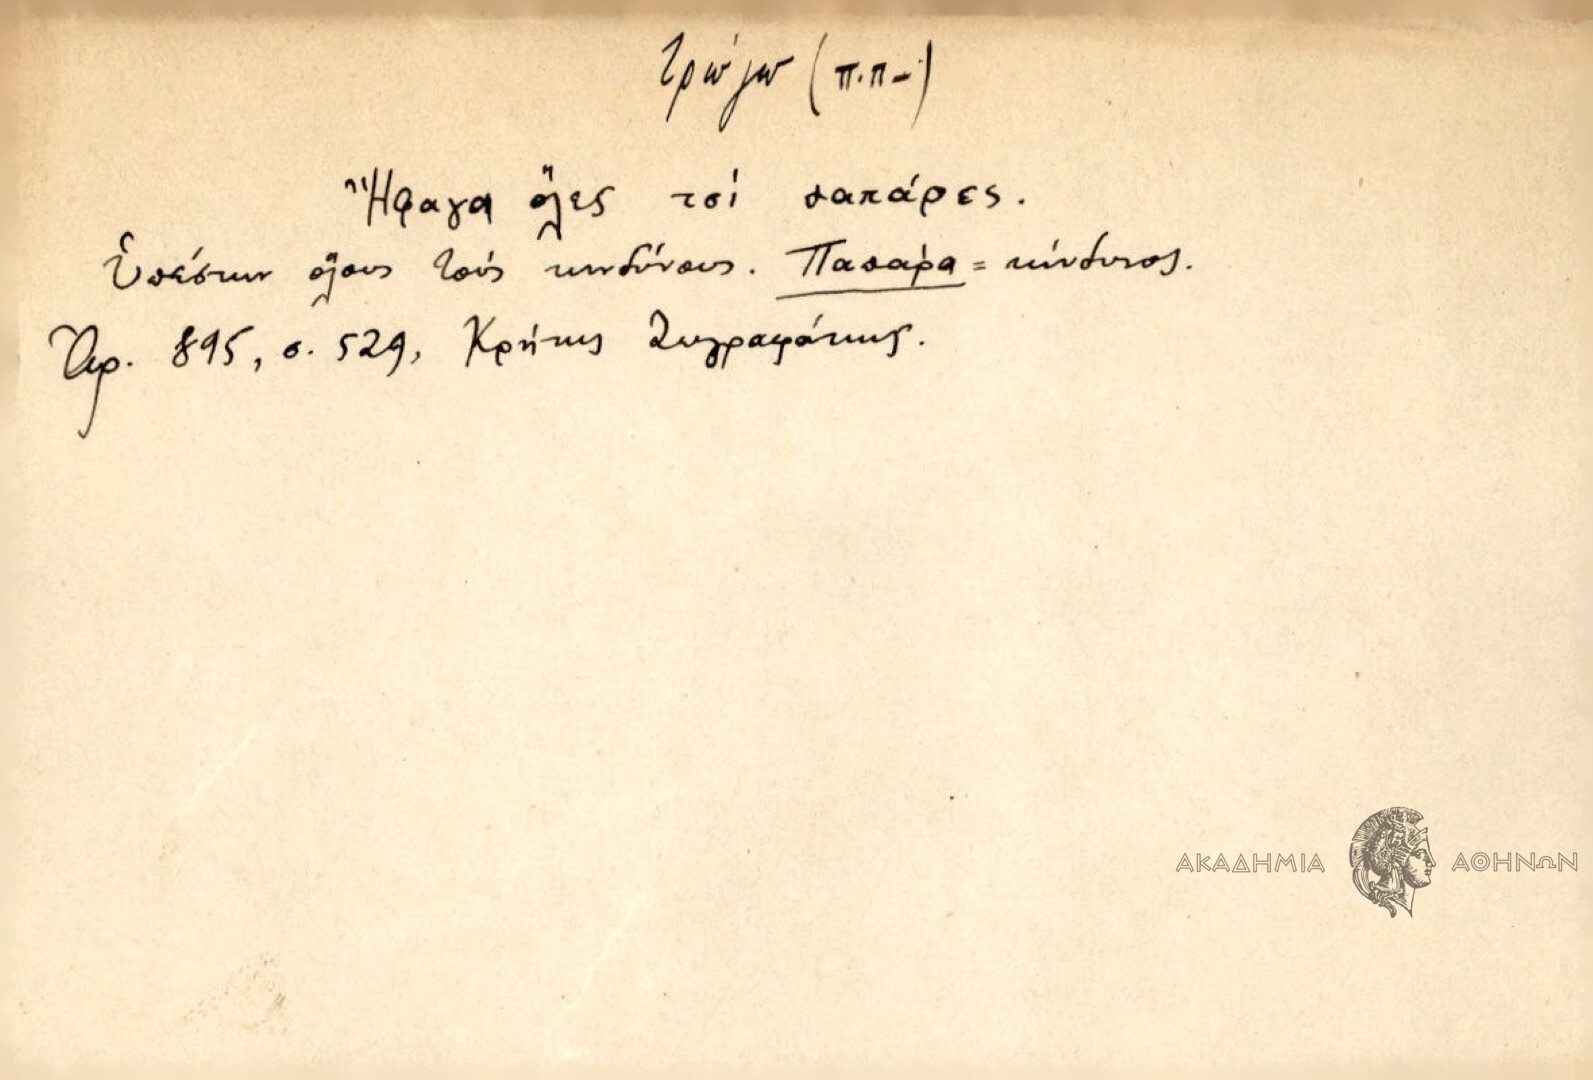 τρώγω (π.π-)
Ἤφαγα ὅλες τσί παπάρες.
Ὑπέστην ὅλους τούς κινδύνους. Παπάρα = κίνδυνος.
Ἀρ. 895, σ. 529, Κρήτης Ζωγραφάκης.
ΑΚΑΔΗΜΙΑ ΑΘΗΝΩΝ